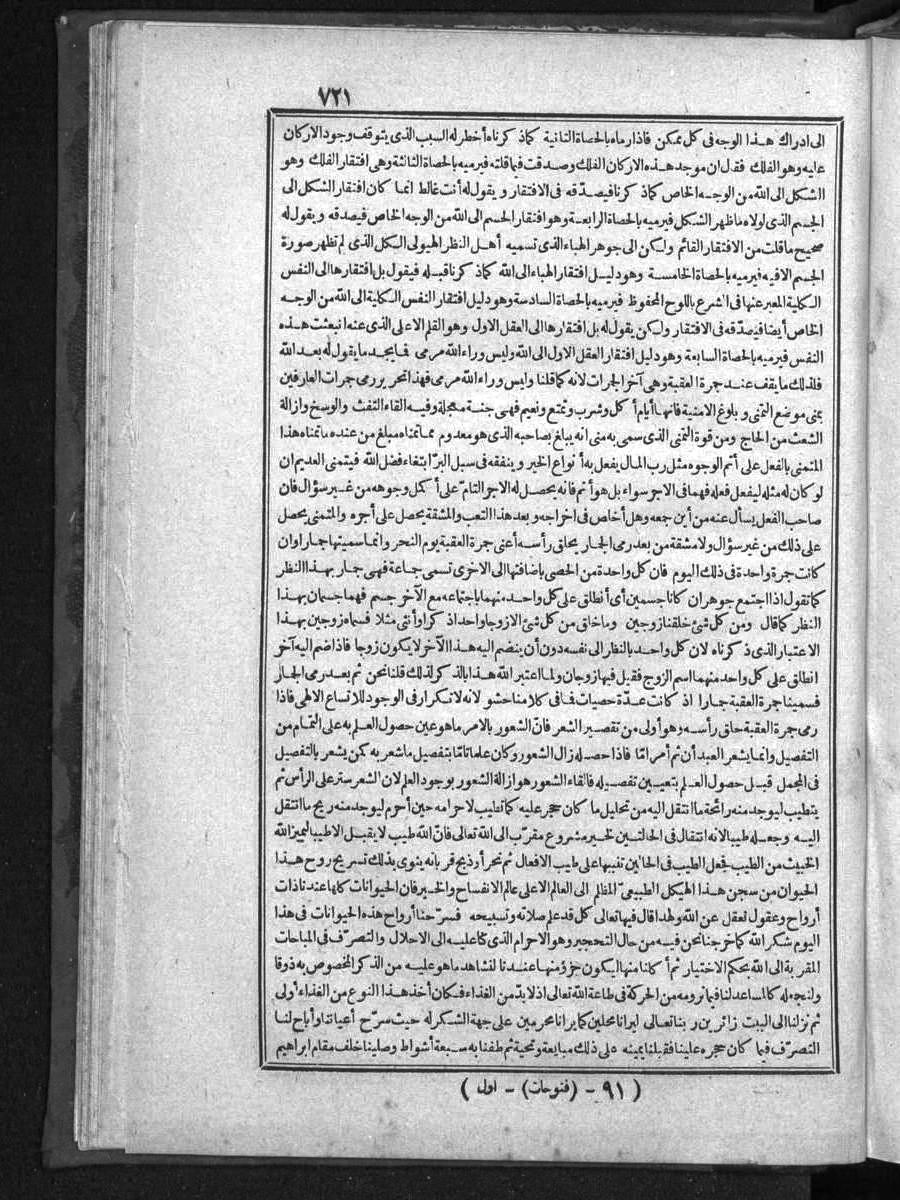 ٧٢١
الى ادراك هذا الوجه فى كل ممكن فاذا رماه بالحصاة الثانية كما ذكرناه أخطر له السبب الذى يتوقف وجود الاركان
عليه وهو الفلك فقال ان موجد هذه الاركان الفلك وصدقت فيما قلته فيرميه بالحصاة الثالثة وهى افتقار الفلك وهو
الشكل الى الله من الوجه الخاص كما ذكرنا فيصدّقه فى الافتقار ويقول له أنت غالط انما كان افتقار الشكل الى
الجسم الذى لولاه ما ظهر الشكل فيرميه بالحصاة الرابعة وهو افتقار الجسم الى الله من الوجه الخاص فيصدقه ويقول له
صحيح ما قلت من الافتقار القائم ولكن الى جوهر الهباء الذى تسميه أهل النظر الهيولى الكل الذى لم تظهر صورة
الجسم الا فيه فيرميه بالحصاة الخامسة وهو دليل افتقار الهباء الى الله كما ذكرنا قبله فيقول بل افتقارها الى النفس
الكلية المعبر عنها فى الشرع باللوح المحفوظ فيرميه بالحصاة السادسة وهو دليل افتقار النفس الكلية الى الله من الوجه
الخاص أيضا فيصدّقه فى الافتقار ولكن يقول له بل افتقارها الى العقل الاول وهو القلم الاعلى الذى عنه انبعثت هذه
النفس فيرميه بالحصاة السابعة وهو دليل افتقار العقل الاول الى الله وليس وراء الله مرمى فما يجد ما يقول له بعد الله
فلذلك ما يقف عند جمرة العقبة وهى آخر الجمرات لانه كما قلنا وليس وراء الله مرمى فهذا تحرير رمى جمرات العارفين
بمنى موضع التمنى وبلوغ الامنية فانها أيام أكل وشرب وتمتع ونعيم فهى جنة معجلة وفيه القاء التفث والوسخ وازالة
الشعث من الحاج ومن قوة التمنى الذى سمى به منى انه يبلغ بصاحبه الذى هو معدوم مما تمناه مبلغ من عنده ما تمناه هذا
المتمنى بالفعل على أتم الوجوه مثل رب المال يفعل به أنواع الخير وينفقه فى سبل البرّ ابتغاء فضل الله فيتمنى العديم ان
لو كان له مثله ليفعل فعله فهما فى الاجر سواء بل هو أتم فانه يحصل له الاجر التامّ على أكمل وجوهه من غير سؤال فان
صاحب الفعل يسأل عنه من أين جمعه وهل أخاص فى اخراجه وبعد هذا التعب والمشقة يحصل على أجره والمتمنى يحصل
على ذلك من غير سؤال ولا مشقة من بعد رمى الجار يحلق رأسه أعنى جمرة العقبة يوم النحر وانما سميتها جمارا وان
كانت جمرة واحدة فى ذلك اليوم فان كل واحدة من الحصى باضافتها الى الاخرى تسمى جماعة فهى جار بهذا النظر
كما تقول اذا اجتمع جوهران كانا جسمين أى أنطلق على كل واحد منهما باجتماعه مع الآخر جسم فهما جسمان بهذا
النظر كما قال ومن كل شئ خلقنا زوجين وما خلق من كل شئ الا زوجا واحدا ذكرا وأنثى مثلا فسماه زوجين بهذا
الاعتبار الذى ذكرناه لان كل واحد بالنظر الى نفسه دون أن ينضم اليه هذا الآخر لا يكون زوجا فاذا ضم اليه آخر
انطلق على كل واحد منهما اسم الزوج فقيل فيهما زوجان ولما اعتبر الله هذا بالذكر لذلك قلنا نحن ثم بعد رمى الجار
فسمينا جمرة العقبة جارا اذ كانت عدّة حصيات فما فى كلامنا حشو لانه لا تكرار فى الوجود للاتساع الالهى فاذا
رمى جمرة العقبة حلق رأسه وهو أولى من تقصير الشعر فانّ الشعور بالامر ما هو عين حصول العلم به على التمام من
التفصيل وانما يشعر العبد أن ثم أمرا مّا فاذا حصله زال الشعور وكان علما تامّا بتفصيل ما شعر به كمن يشعر بالتفصيل
فى المجمل قبل حصول العلم بتعيين تفصيله فالقاء الشعور هو ازالة الشعور بوجود العلم لان الشعر ستر على الرأس ثم
يتطيب ليوجد منه رائحة ما انتقل اليه من تحليل ما كان حجر عليه كما تطيب لاحرامه حين أحرم ليوجد منه ريح ما انتقل
اليه وجعله طيبا لانه انتقال فى الحالتين لخير مشروع مقرّب الى الله تعالى فانّ الله طيب لا يقبل الا طيبا ليميز الله
الخبيث من الطيب فجعل الطيب فى الحالين تنبيها على طيب الافعال ثم نحر أو ذبح قربانه ينوى بذلك تسريح روح هذا
الحيوان من سجن هذا الهيكل الطبيعىّ المظلم الى العالم الاعلى عالم الانفساح والخير فان الحيوانات كلها عندنا ذات
أرواح وعقول تعقل عن الله ولهذا قال فيها تعالى كل قد علم صلاته وتسبيحه فسرّحنا أرواح هذه الحيوانات فى هذا
اليوم شكر الله كما خرجنا نحن فيه من حال التحجير وهو الاحرام الذى كنا عليه الى الاحلال والتصرّف فى المباحات
المقربة الى الله بحكم الاختيار ثم أكلنا منها ليكون جزؤ منها عندنا لنشاهد ما هو عليه من الذكر المخصوص به ذوقا
ولنجعله كالمساعد لنا فيما نرومه من الحركة فى طاعة الله تعالى اذ لا بدّ من الغذاء فكان أخذ هذا النوع من الغذاء أولى
ثم نزلنا الى البيت زائرين ربنا تعالى ليرانا محلين كما يرانا محرمين على جهة الشكر له حيث سرّح أعياننا وأباح لنا
التصرّف فيما كان حجره علينا فقبلنا يمينه على ذلك مبايعة وتحية ثم طفنا به سبعة أشواط وصلينا خلف مقام ابراهيم
( ٩١ - (فتوحات) - اول )